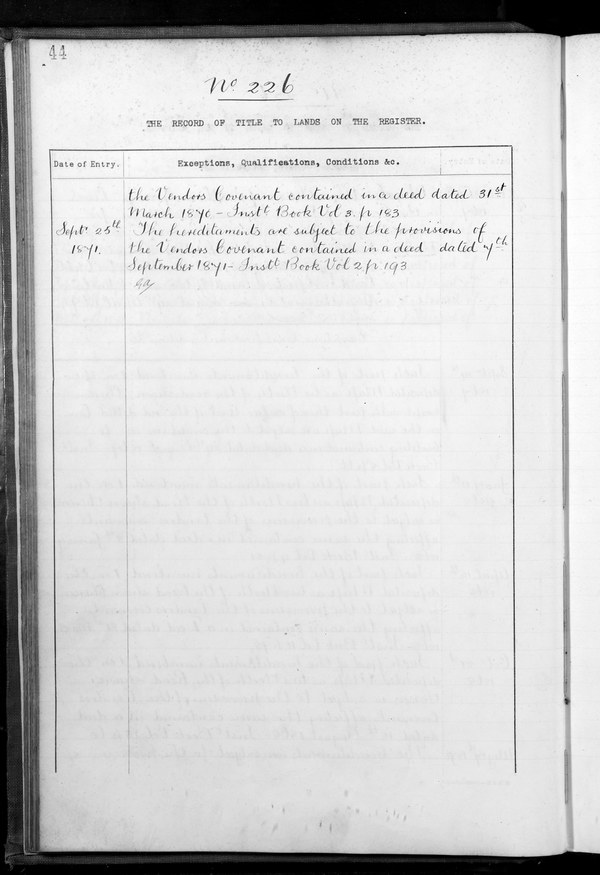 44
No 226
THE RECORD OF TITLE TO LANDS ON THE REGISTER.
Date of Entry. Exceptions, Qualifications, Conditions &c.
the Vendors Covenant contained in a deed dated 31st
March 1870 - Instt Book Vol 3. p 183
Septr 25th The hereditaments are subject to the provisions of
1871. the Vendors Covenant contained in a deed dated 7th
September 1871 - Instt Book Vol 2 p 193